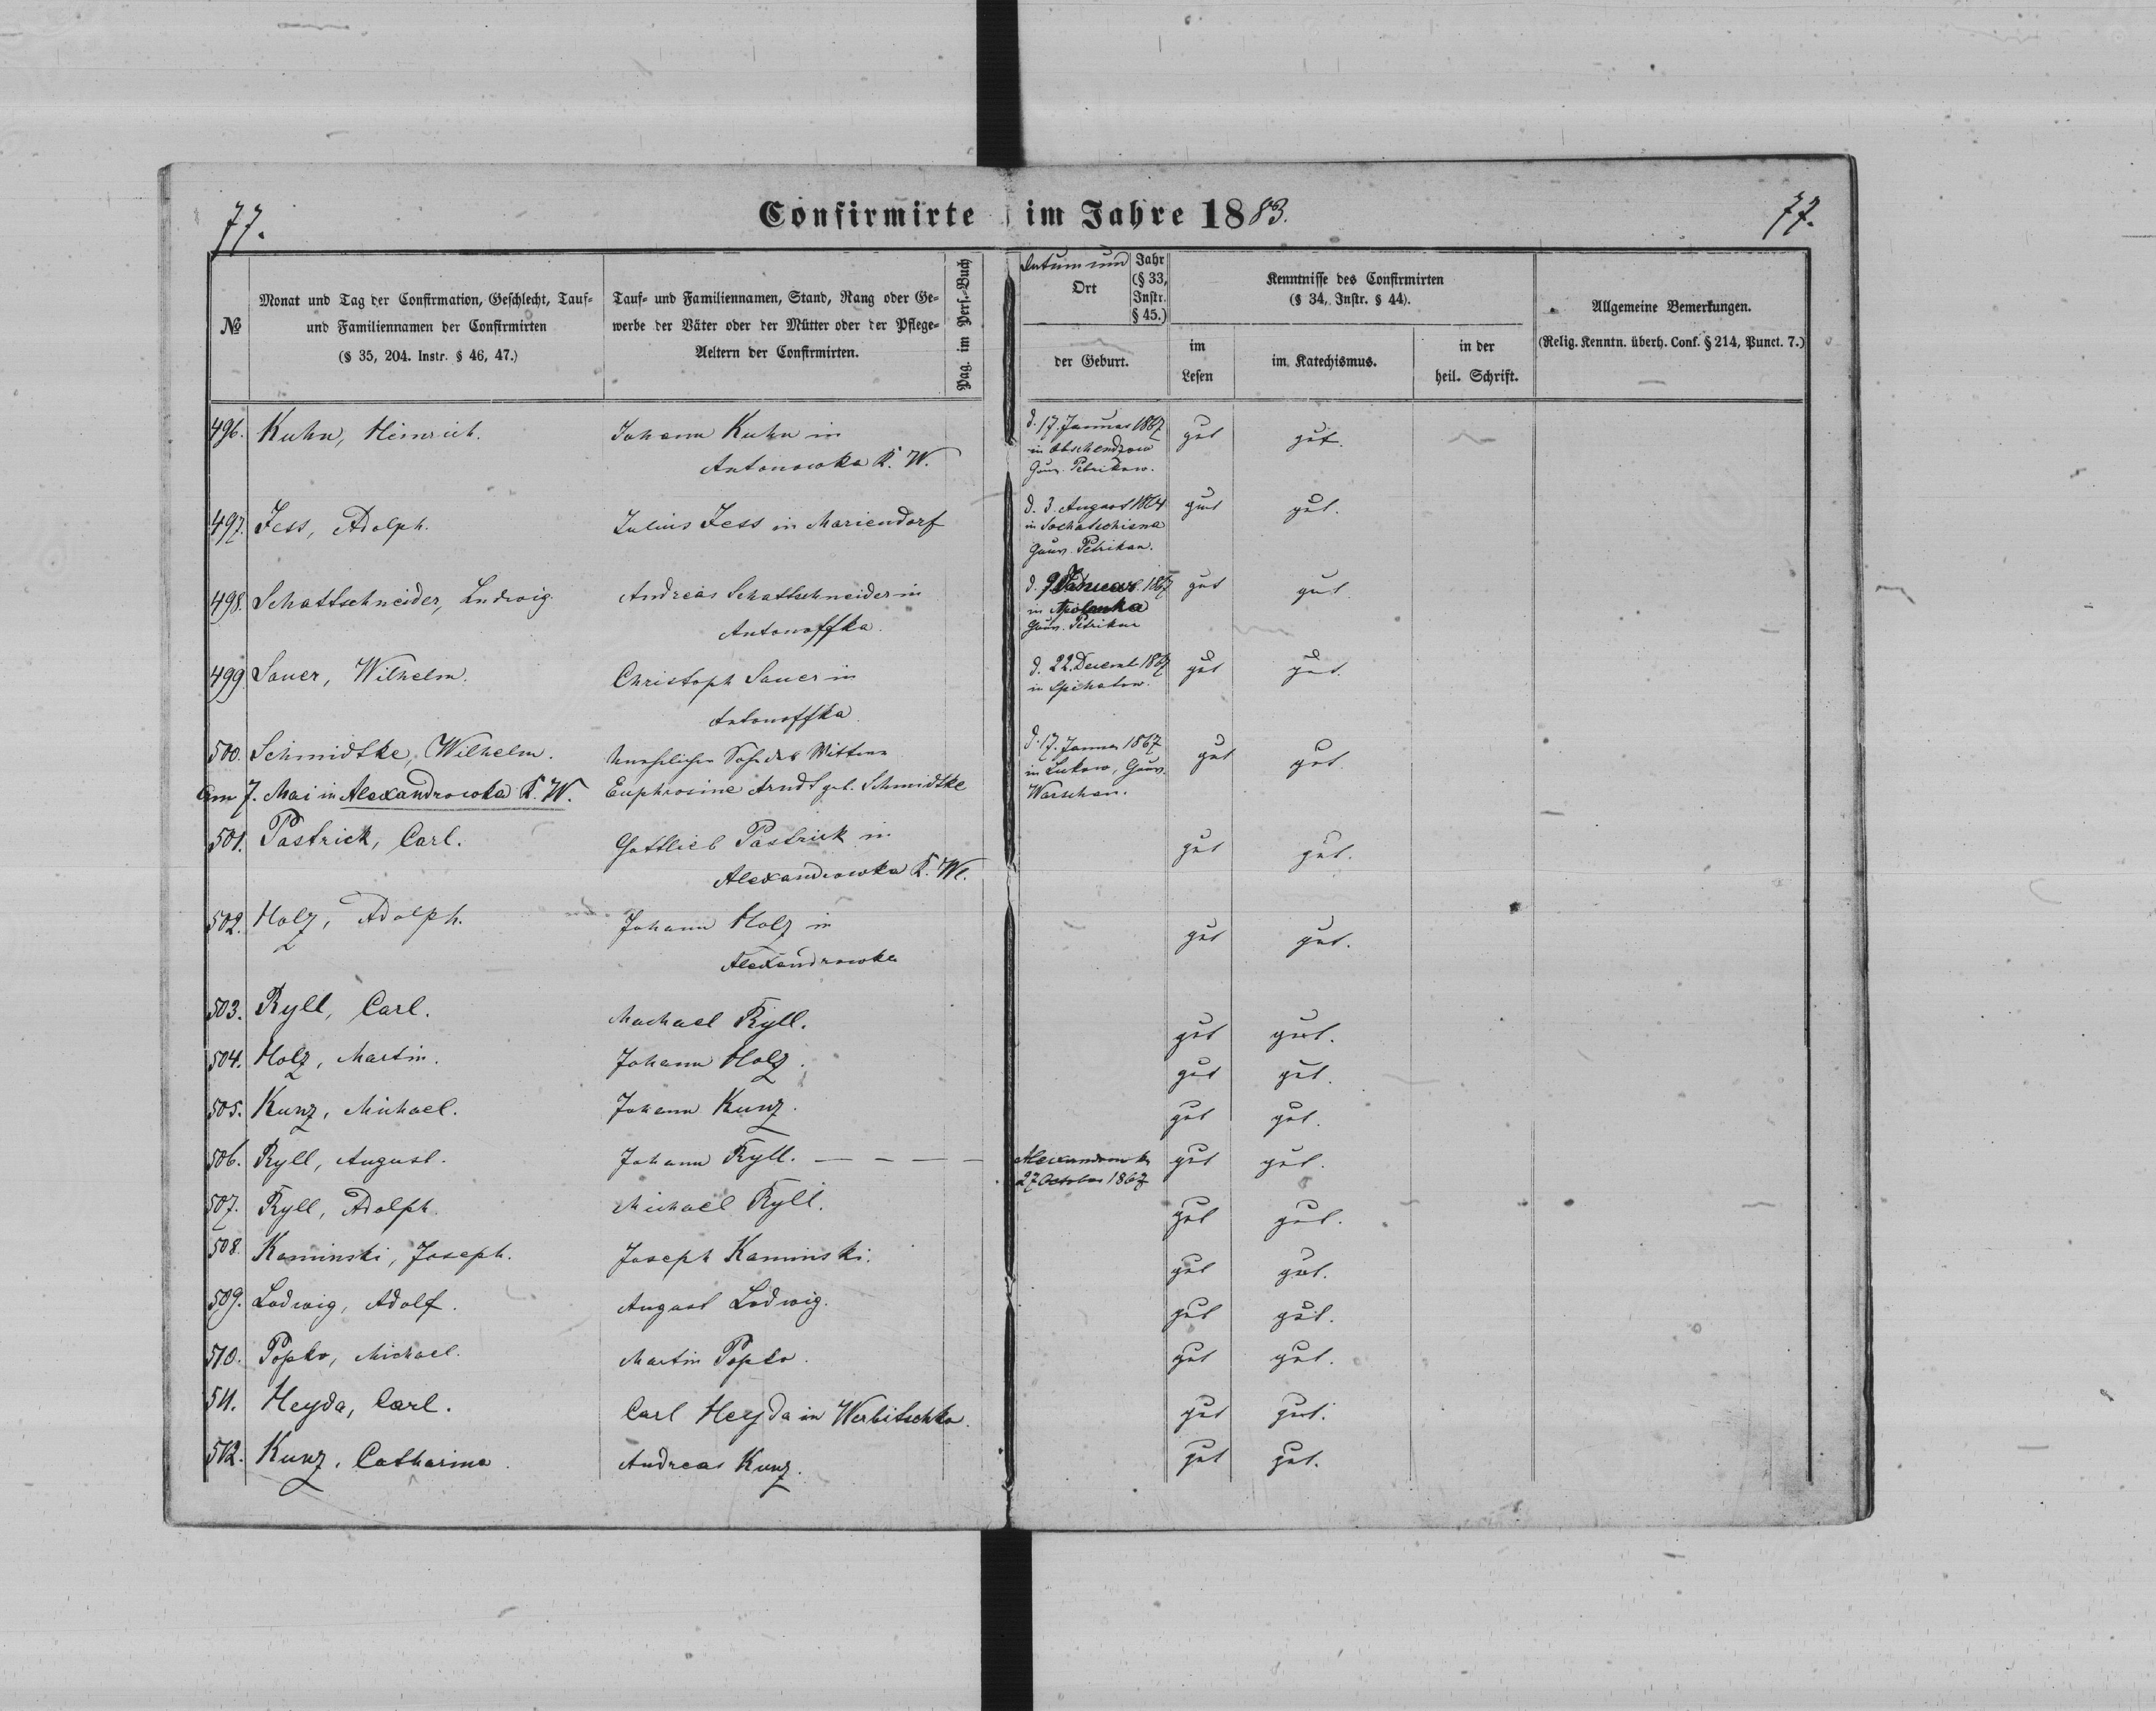 77.
Confirmirte im Jahre 1883.
77.
№
Monat und Tag der Confirmation, Geschlecht, Tauf-
und Familiennamen der Confirmirten
(§ 35, 204. Instr. § 46, 47.)
Tauf- und Familiennamen, Stand, Rang oder Ge-
werbe der Väter oder der Mütter oder der Pflege-
Aeltern der Confirmirten.
Pag. im Pers.-Buch
Datum und
Ort
Jahr
(§ 33,
Instr.
§ 45.)
der Geburt.
Kenntnisse des Confirmirten
(§ 34, Instr. § 44).
im
Lesen
im Katechismus.
in der
heil. Schrift.
Allgemeine Bemerkungen.
(Relig. Kenntn. überh. Conf. § 214, Punct. 7.)
496. Kuhn, Heinrich. Johann Kuhn in
Antonowka K. W.
d. 17. Januar 1867
in
Gouv. Petrikow.
gut gut.
497. Jess, Adolph. Julius Jess in Mariendorf
d. 3. August 1864
in
Gouv. Petrikau.
gut gut.
498. Schattschneider, Ludwig. Andreas Schattschneider in
Antonoffka.
d. 9 Januar 1867
in
Gouv. Petrikau
gut gut.
499. Sauer, Wilhelm. Christoph Sauer in
Antonoffka.
d. 22. Decemb 1867
in
gut gut.
500. Schmidtke, Wilhelm. Unehelicher Sohn der Wittwe
Euphrosine Arndt geb. Schmidtke
d. 17. Januar 1867
in Lukow, Gouv.
Warschau.
gut gut.
Am 7. Mai in Alexandrowka K. W.
501. Pastrick, Carl. Gottlieb Pastrick in
Alexandrowka K. W.
gut gut.
502. Holz, Adolph. Johann Holz in
Alexandrowka
gut gut.
503. Ryll, Carl. Machael Ryll. gut gut.
504. Holz, Martin. Johann Holz. gut gut.
505. Kunz, Michael. Johann Kunz. gut gut.
506. Ryll, August. Johann Ryll. — — — — Alexandrowka gut gut.
27 October 1867
507. Ryll, Adolph. Michael Ryll. gut gut.
508. Kaminski, Joseph. Joseph Kaminski. gut gut.
509. Ludwig, Adolf. August Ludwig. gut gut.
510. Popko, Michael. Martin Popko. gut gut.
511. Heyda, Carl. Carl Heyda in Werbitschka. gut gut.
512. Kunz, Catharina. Andreas Kunz. gut gut.